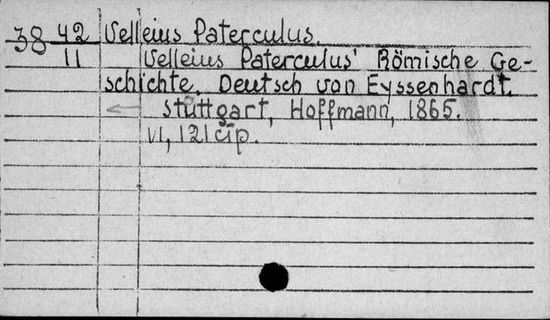 38 42 Velleius Paterculus.
11 Velleius Paterculus' Römische Ge-
schichte. Deutsch von Eyssenhardt.
Stuttgart, Hoffmann, 1865.
VI, 121 cip.